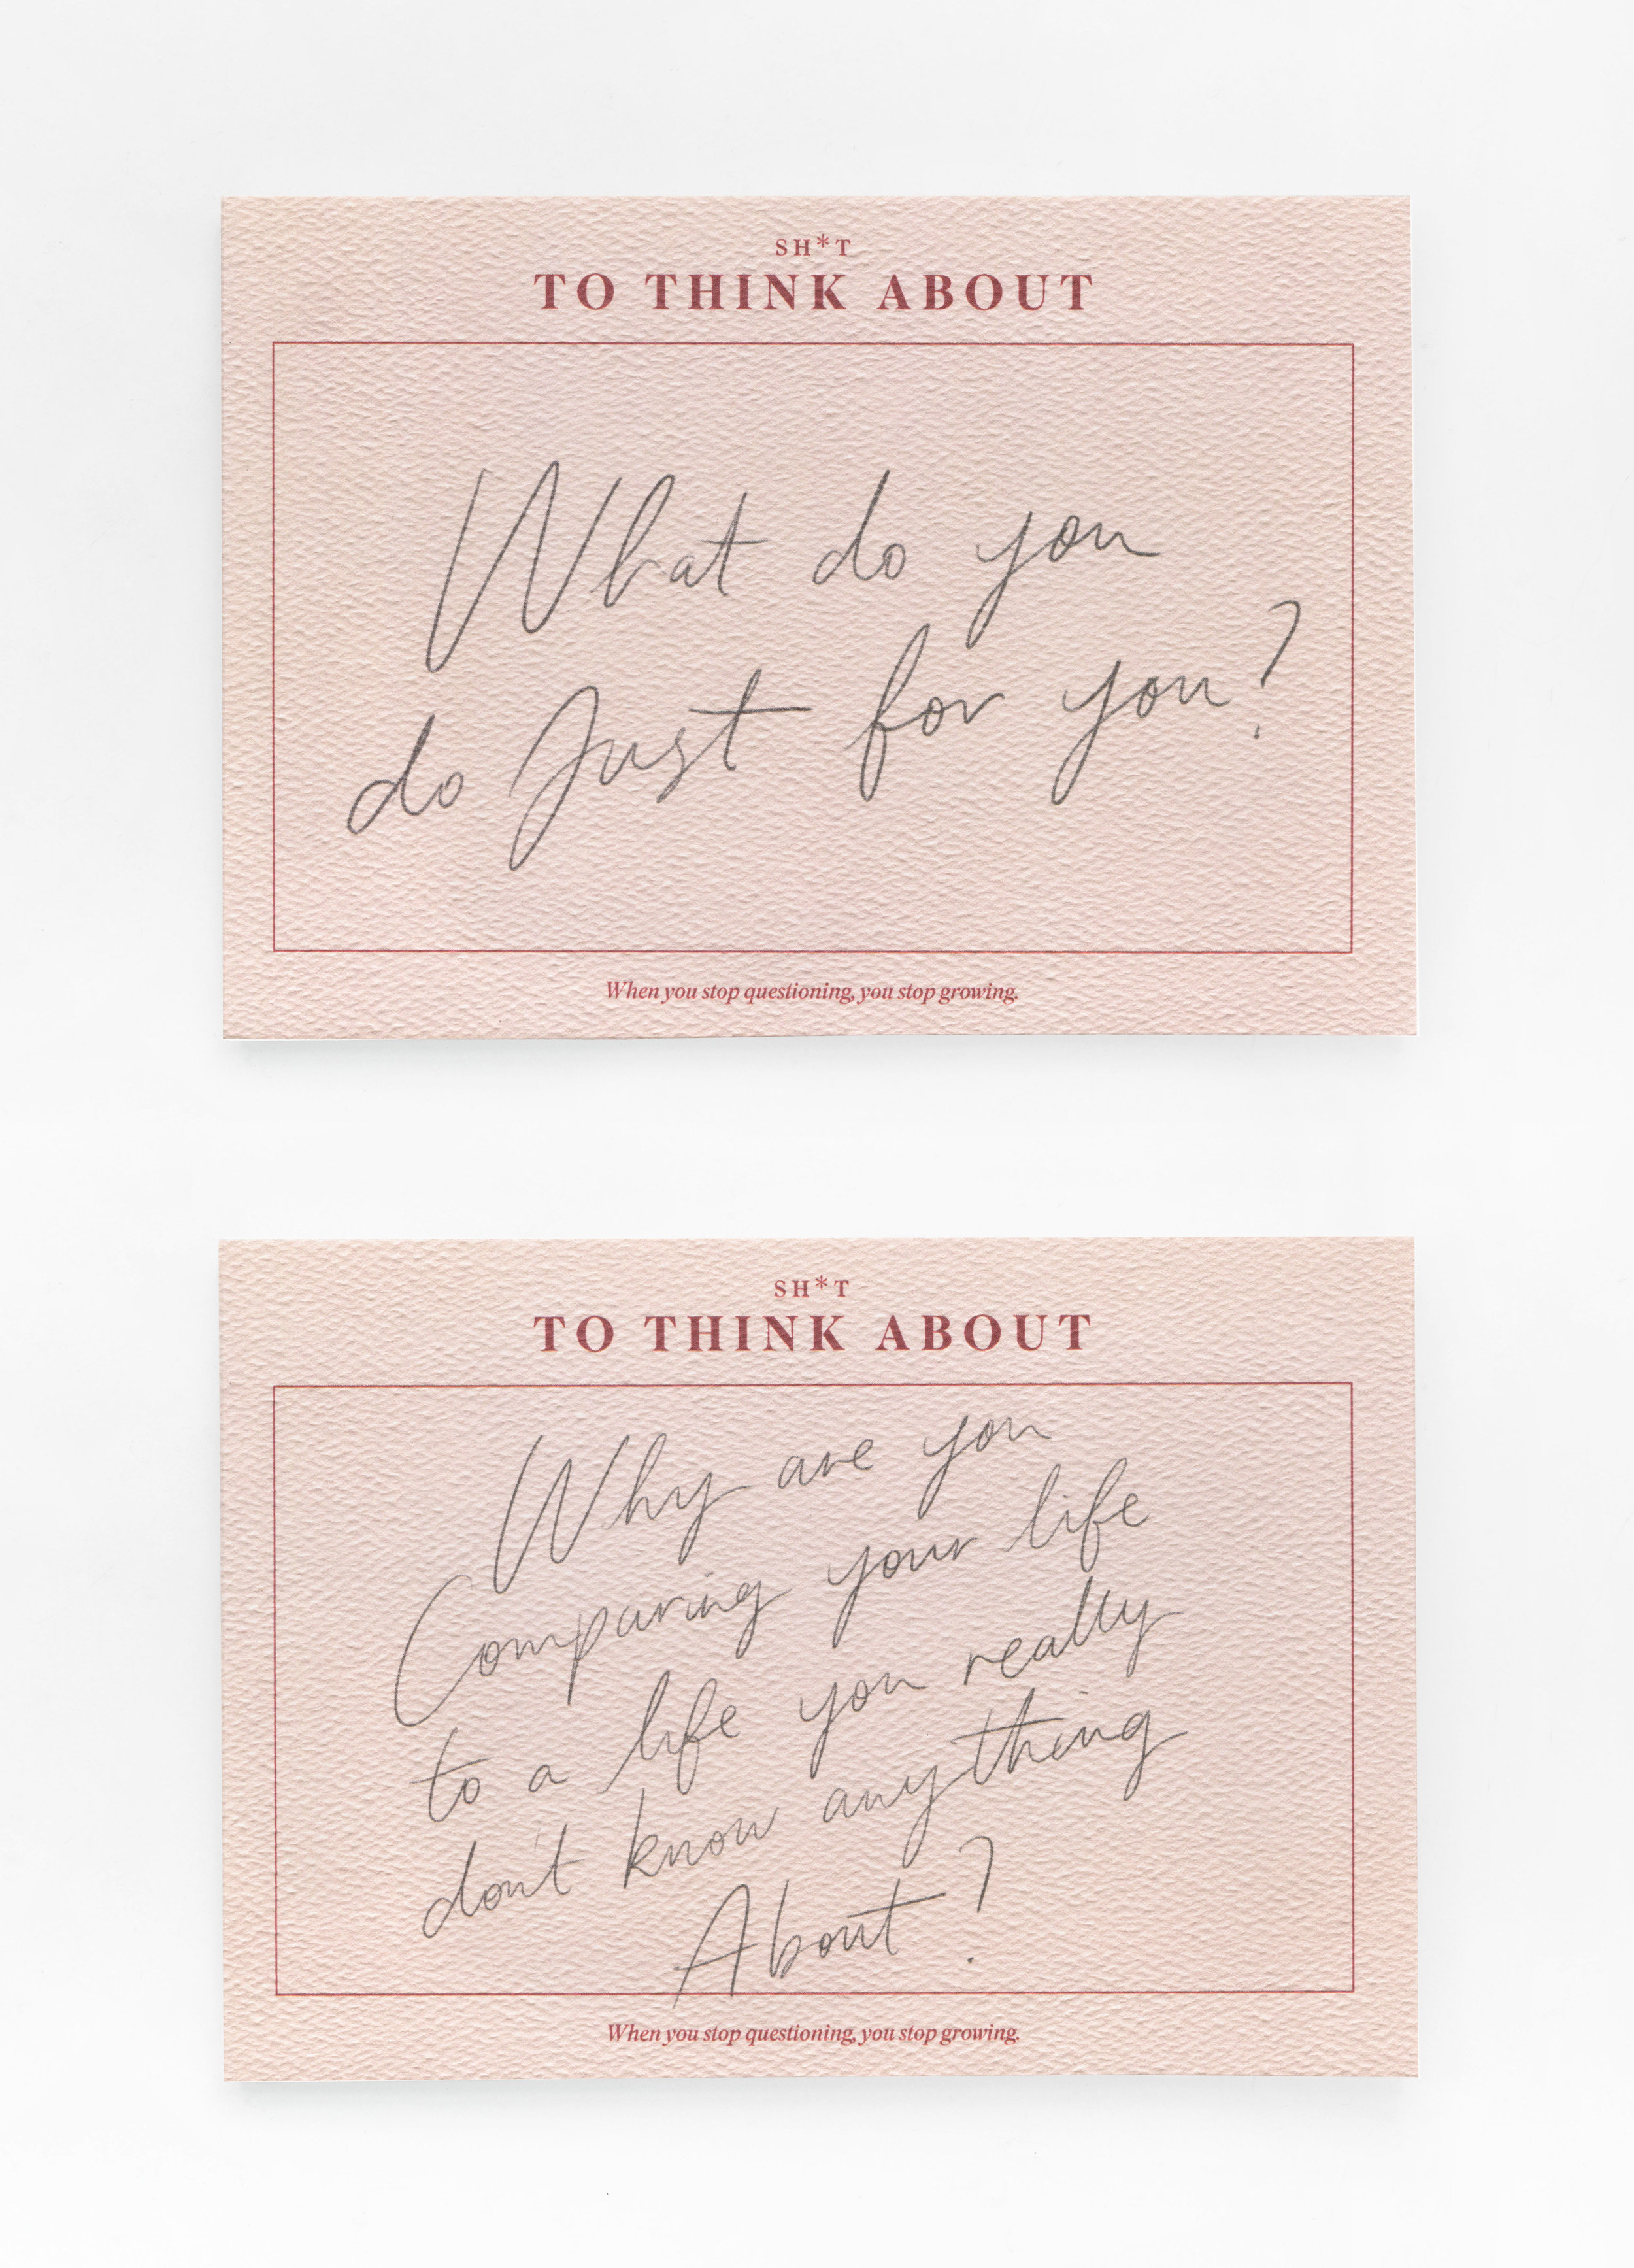 SH*T
TO THINK ABOUT
What do you
do Just for you?
When you stop questioning, you stop growing.
SH*T
TO THINK ABOUT
Why are you
Comparing your life
to a life you really
don't know anything
About?
When you stop questioning, you stop growing.